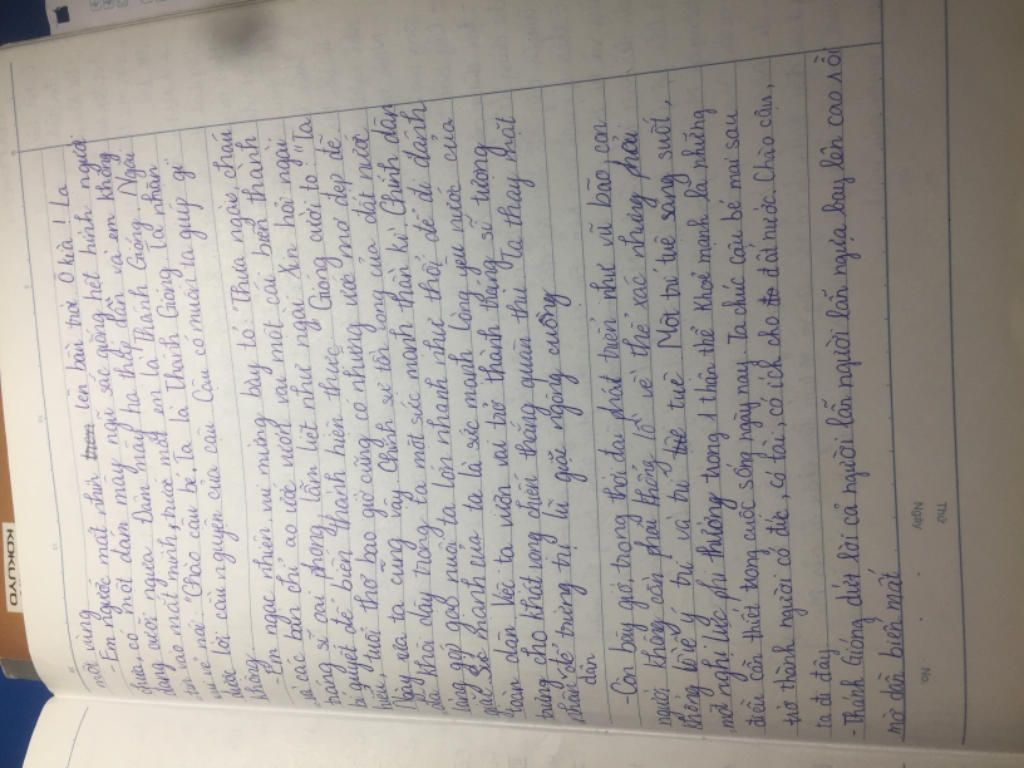 KOKUYO
Thứ
Ngày
No.
một vùng
- Em ngước mắt nhìn lên bầu trời. Ồ kìa! Lạ
chưa, có một đám mây ngũ sắc giăng hết hình người
đang cưỡi ngựa. Đám mây hạ thấp dần và em không
tin vào mắt mình, trước mắt em là Thánh Gióng. Ngài
vui vẻ nói "Chào cậu bé. Ta là Thánh Gióng. Ta nhận
được lời cầu nguyện của cậu. Cậu có muốn ta giúp gì
không
- Em ngạc nhiên, vui mừng bày tỏ "Thưa ngài, cháu
và các bạn chỉ ao ước vươn vai một cái biến thành
tráng sĩ oai phong, lẫm liệt như ngài. Xin hỏi ngài
bí quyết để biến thành hiện thực. Gióng cười to "Ta
hiểu, tuổi thơ bao giờ cũng có những ước mơ đẹp đẽ
Ngày xưa ta cũng vậy. Chính sự tồn vong của đất nước
đã khơi dậy trong ta một sức mạnh thần kì. Chính dân
làng góp gạo nuôi ta lớn nhanh như thổi để đi đánh
giặc. Sự hình của ta là sức mạnh lòng yêu nước của
toàn dân. Việc ta vươn vai trở thành tráng sĩ tượng
trưng cho khát vọng chiến thắng quân thù. Ta thay mặt
nhân để trừng trị lũ giặc ngông cuồng
dân
- Còn bây giờ, trong thời đại phát triển như vũ bão, con
người không cần phải khổng lồ về thể xác nhưng phải
khổng lồ về ý trí và trí tuệ. Một trí tuệ sáng suốt,
một nghị lực phi thường trong 1 thân thể khoẻ mạnh là những
điều cần thiết trong cuộc sống ngày nay. Ta chúc cậu bé mai sau
trở thành người có đức, có tài, có ích cho đất nước. Chào cậu,
ta đi đây
- Thánh Gióng dứt lời cả người lẫn người lẫn ngựa bay lên cao rồi
mờ dần biến mất